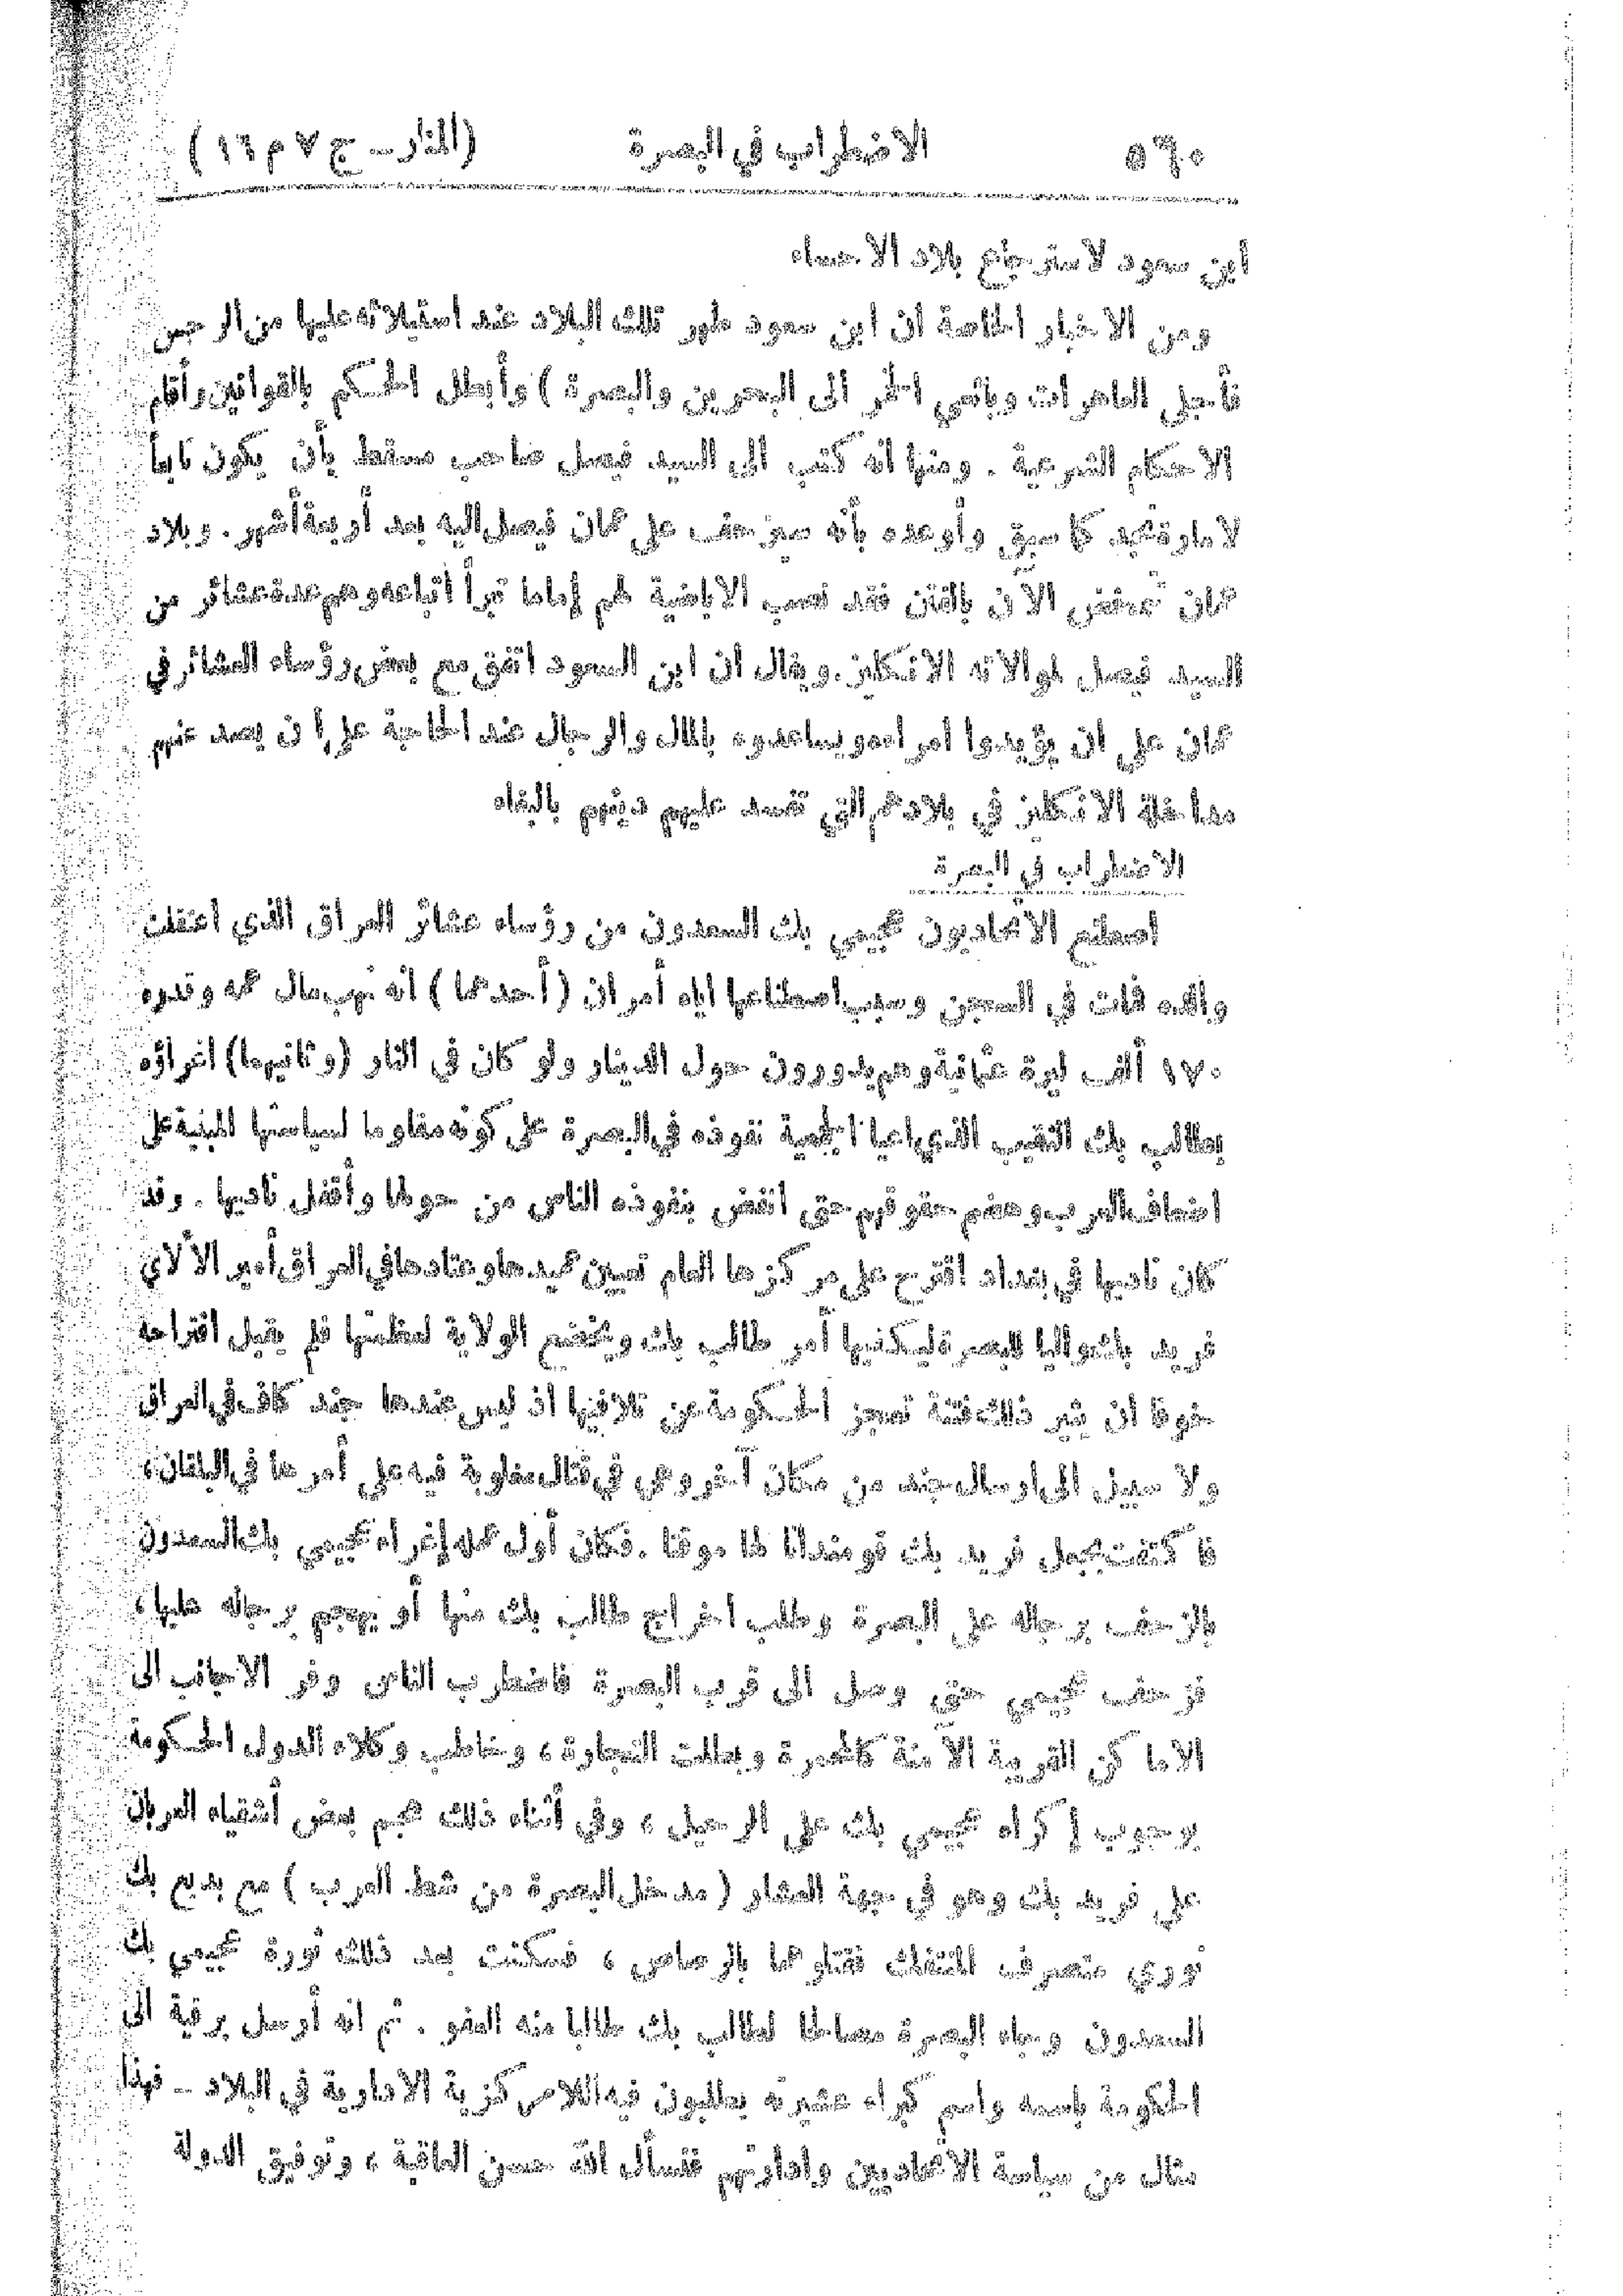 ٥٦٠ الاضطراب في البصرة (المنار – ج ٧ م ١٦)
ابن سعود لاسترجاع بلاد الاحساء
ومن الاخبار الخاصة ان ابن سعود طهر تلك البلاد عند استيلائه عليها من الرجس
فأجلى العاهرات وبائعي الخمر الى البحرين والبصرة ) وأبطل الحكم بالقوانين وأقام
الاحكام الشرعية . ومنها انه كتب الى السيد فيصل صاحب مسقط بأن يكون تابعاً
لامارة نجد كما سبق وأوعده بأنه سيزحف على عمان فيصل اليه بعد أربعة أشهر . وبلاد
عمان تمخض الآن بالفتن فقد نصب الاباضية لهم إماما تبرأ اتباعه وهم عدة عشائر من
السيد فيصل لموالاته الانكليز . ويقال ان ابن السعود اتفق مع بعض رؤساء العشائر في
عمان على ان يؤيدوا امراءه ويساعدوه بالمال والرجال عند الحاجة على ان يصد عنهم
مداخلة الانكليز في بلادهم التي تفسد عليهم دينهم بالبغاء
الاضطراب في البصرة
اصطنع الاتحاديون عجيمي بك السعدون من رؤساء عشائر العراق الذي اعتقلت
والده فمات في السجن وسبب اصطناعها اياه أمران (أحدهما) انه نهب مال عمه وقدره
١٧٠ ألف ليرة عثمانية وهم يدورون حول الدينار ولو كان في النار (وثانيهما) اغراؤه
بطالب بك النقيب الذي اعيا الجمعية نفوذه في البصرة على كونه مقاوما لسياستها المبنية على
اضعاف العرب وهضم حقوقهم حتى انفض بنفوذه الناس من حولها وأقفل ناديها . وقد
كان ناديها في بغداد اقترح على مركزها العام تعيين عميدها وعتادها في العراق أمير الالاي
فريد بك واليا للبصرة ليكفيها أمر طالب بك ويخضع الولاية لعظمتها فلم يقبل اقتراحه
خوفا ان يثير ذلك فتنة تعجز الحكومة عن تلافيها اذ ليس عندها جند كاف في العراق
ولا سبيل الى ارسال جند من مكان آخر وهي في قتال مغلوبة فيه على أمرها في البلقان،
فاكتفت بجعل فريد بك قومندانا لها موقتا . فكان أول عمله إغراء عجيمي بك السعدون
بالزحف برجاله على البصرة وطلب اخراج طالب بك منها أو يهجم برجاله عليها ،
فزحف عجيمي حتى وصل الى قرب البصرة فاضطرب الناس وفر الاجانب الى
الاماكن القريبة الآمنة كالمحمرة وبطلت التجارة ، وخاطب وكلاء الدول الحكومة
بوجوب إكراه عجيمي بك على الرحيل ، وفي أثناء ذلك هجم بعض أشقياء العربان
على فريد بك وهو في جهة العشار ( مدخل البصرة من شط العرب ) مع بديع بك
نوري متصرف المنتفك فقتلوهما بالرصاص ، فسكنت بعد ذلك ثورة عجيمي بك
السعدون وجاء البصرة مصالحا لطالب بك طالبا منه العفو . ثم انه أرسل برقية الى
الحكومة باسمه واسم كبراء عشيرته يطلبون فيه اللامركزية الادارية في البلاد – فهذا
مثال من سياسة الاتحاديين وادارتهم فنسأل الله حسن العاقبة ، وتوفيق الدولة